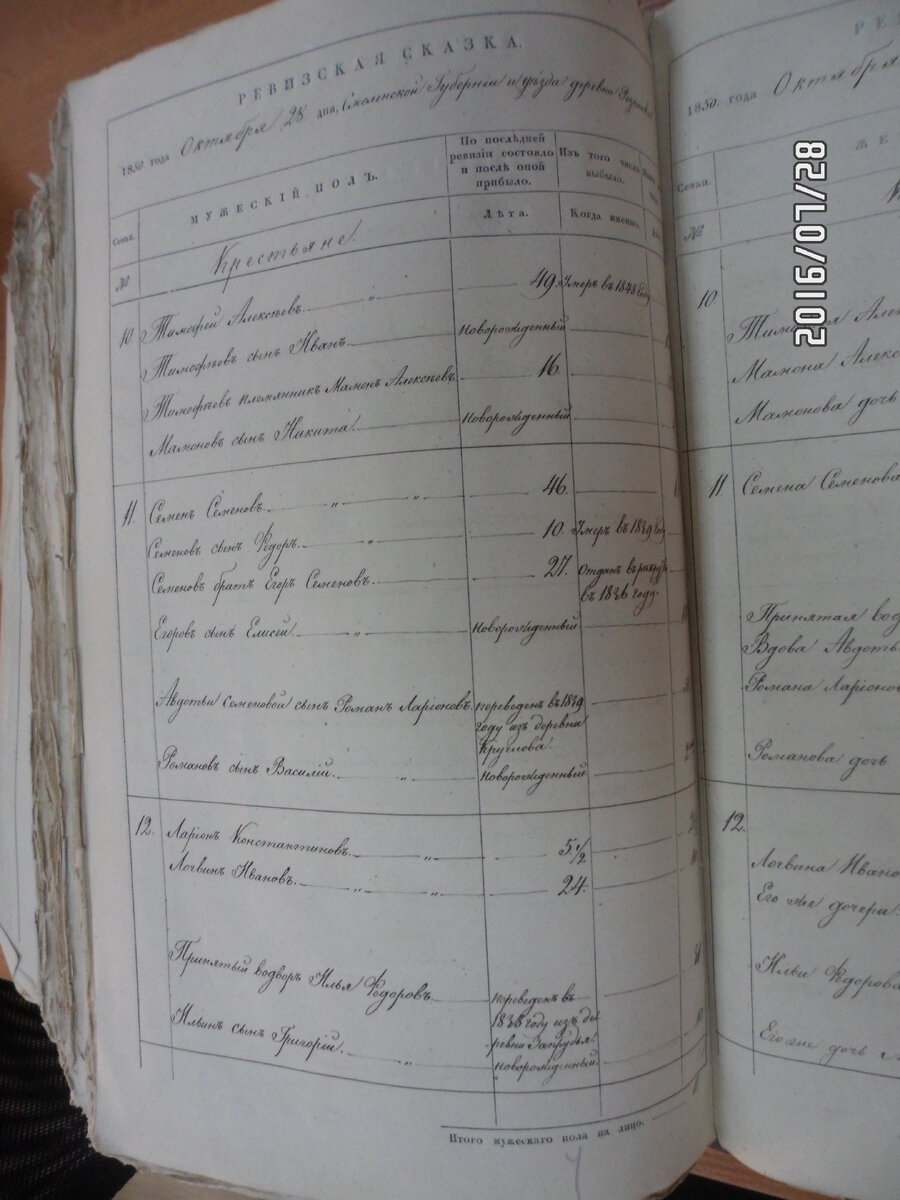 РЕВИЗСКАЯ СКАЗКА.
1850 года Октября 28 дня, Смоленской Губерніи и уѣзда деревни
Семьи.
МУЖЕСКІЙ ПОЛЪ.
По послѣдней
ревизіи состояло
и послѣ оной
прибыло.
Изъ того числа
выбыло.
№
Крестьяне.
Лѣта.
Когда именно.
10 Тимофей Алексѣевъ. „ 49. Умеръ въ 1848 Году
Тимофѣевъ сынъ Иванъ. Новорожденный
Тимофѣевъ племянникъ Мамонъ Алексѣевъ. 16.
Мамоновъ сынъ Никита. Новорожденный
11. Семенъ Семеновъ. „ „ 46.
Семеновъ сынъ Ѳедоръ. „ 10. Умеръ въ 1839 Году
Семеновъ братъ Егоръ Семеновъ. 27. Отданъ въ
въ 1836 году.
Егоровъ сынъ Елисей. „ Новорожденный
Авдотьи Семеновой сынъ Романъ Ларіоновъ. переведенъ въ 1839
году изъ деревни
Круглова.
Романовъ сынъ Василій. „ Новорожденный
12. Ларіонъ Константиновъ. „ 5 1/2
Логвинъ Ивановъ. „ „ 24.
Принятый водворъ Илья Ѳедоровъ переведенъ въ
1838 году изъ де
ревни Запрудья.
Ильинъ сынъ Григорій. „ Новорожденный.
Итого мужескаго пола на лицо.
РЕ
1850. года Октября
Семьи.
ЖЕ
№
10.
Мамона Алекс
Мамонова дочь
11. Семена Семенова
Принятая вод
Вдова Авдоть
Романа Ларіоно
Романова дочь
12.
Логвина Ивано
Его же дочери
Ильи Ѳедорова
Его же дочь
2019/07/28